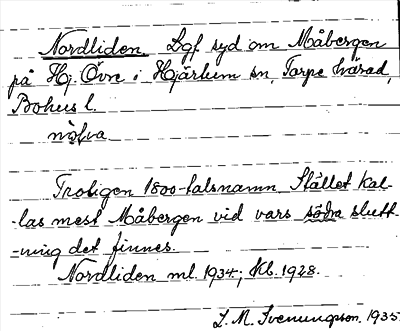 Nordliden Lgf. syd om Måbergen
på Hj. Övre i Hjärtum sn, Torpe härad,
Bohus l.
nòɭva
Troligen 1800-talsnamn Stället kal-
-las mest Måbergen vid vars södra slutt-
-ning det finnes.
Nordliden ml. 1934; Kb. 1928.
L. M. Svenungsson. 1935.